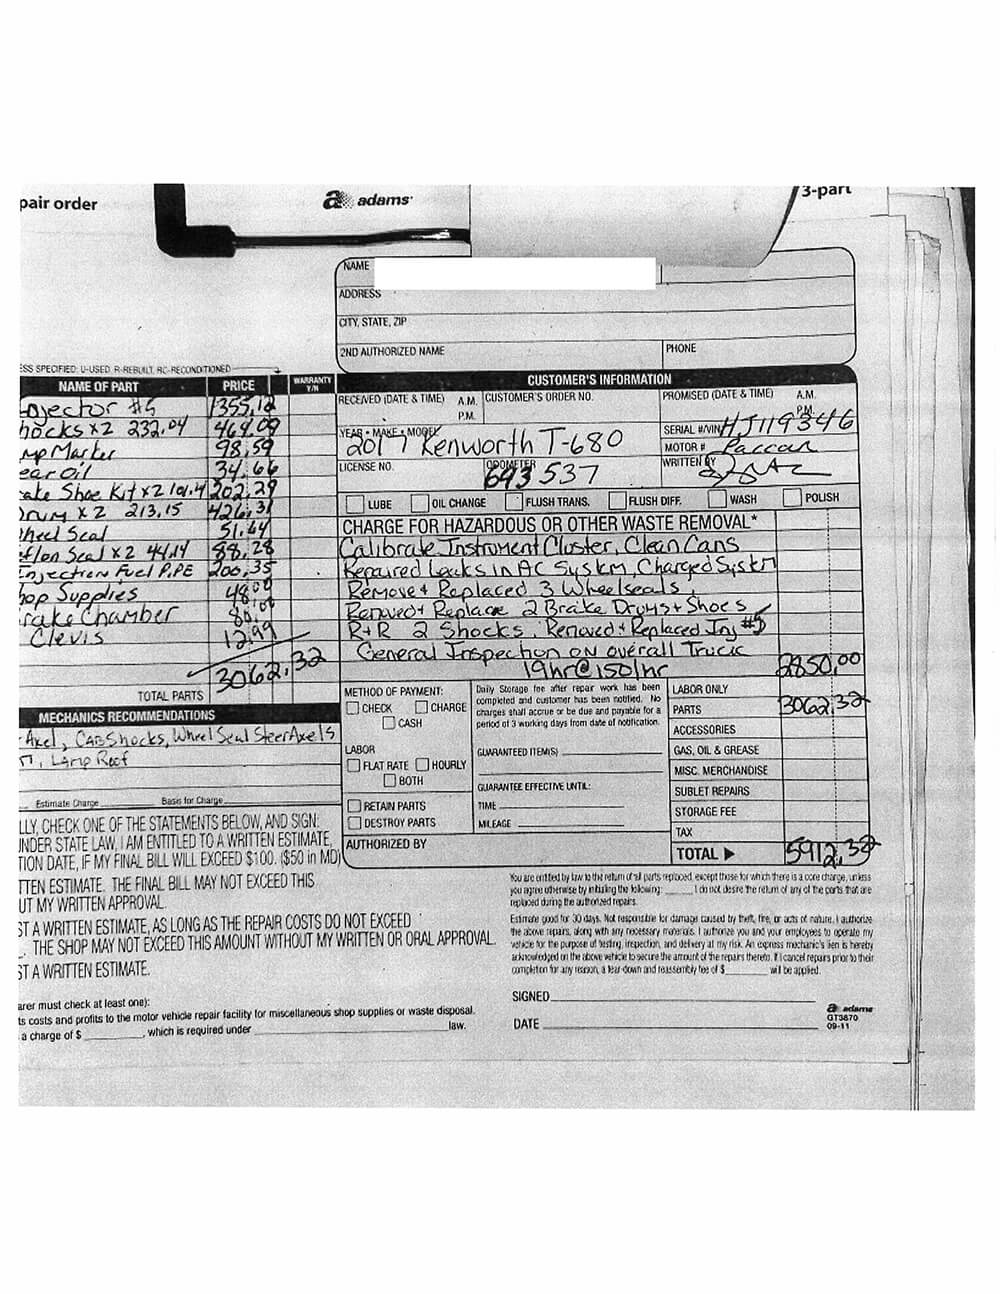 pair order
adams
3-part
NAME
ADDRESS
CITY, STATE, ZIP
2ND AUTHORIZED NAME
PHONE
ESS SPECIFIED: U-USED, R-REBUILT, RC-RECONDITIONED
NAME OF PART PRICE WARRANTY Y/N
njector #5 1355,12
hocks x2 232.04 464.09
mp Marker 98,59
ear Oil 34.66
ake Shoe Kit x2 101.4 202.29
Drum x 2 213.15 426.31
heel Seal 51.64
flon Seal x2 44.14 88,28
Injection Fuel P.PE 200,35
hop Supplies 48.00
rake Chamber 80.00
Clevis 12.99
3062,32
TOTAL PARTS
CUSTOMER'S INFORMATION
RECEIVED (DATE & TIME) A.M. P.M.
CUSTOMER'S ORDER NO.
PROMISED (DATE & TIME) A.M. P.M.
YEAR • MAKE • MODEL 2017 Kenworth T-680
SERIAL #/VIN HJ119346
MOTOR # Paccar
LICENSE NO.
ODOMETER 693537
WRITTEN BY
LUBE OIL CHANGE FLUSH TRANS. FLUSH DIFF. WASH POLISH
CHARGE FOR HAZARDOUS OR OTHER WASTE REMOVAL*
Calibrate Instrument Cluster, Clean Cans
Repaired Leaks in AC System, Charged System
Remove + Replaced 3 Wheelseals,
Removed + Replace 2 Brake Drums + Shoes
R+R 2 Shocks, Removed + Replaced Inj #5
General Inspection on overall Truck
19hr@150/hr 2850,00
METHOD OF PAYMENT:
CHECK CHARGE
CASH
LABOR
FLAT RATE HOURLY
BOTH
RETAIN PARTS
DESTROY PARTS
AUTHORIZED BY
Daily Storage fee after repair work has been
completed and customer has been notified. No
charges shall accrue or be due and payable for a
period of 3 working days from date of notification.
GUARANTEED ITEM(S)
GUARANTEE EFFECTIVE UNTIL:
TIME
MILEAGE
LABOR ONLY
PARTS 3062,32
ACCESSORIES
GAS, OIL & GREASE
MISC. MERCHANDISE
SUBLET REPAIRS
STORAGE FEE
TAX
TOTAL 5912,32
MECHANICS RECOMMENDATIONS
Axel, Cab Shocks, Wheel Seal Steer Axels
, Lamp Roof
Estimate Charge Basis for Charge
LLY, CHECK ONE OF THE STATEMENTS BELOW, AND SIGN:
UNDER STATE LAW, I AM ENTITLED TO A WRITTEN ESTIMATE,
TION DATE, IF MY FINAL BILL WILL EXCEED $100. ($50 in MD)
TTEN ESTIMATE. THE FINAL BILL MAY NOT EXCEED THIS
UT MY WRITTEN APPROVAL.
ST A WRITTEN ESTIMATE, AS LONG AS THE REPAIR COSTS DO NOT EXCEED
. THE SHOP MAY NOT EXCEED THIS AMOUNT WITHOUT MY WRITTEN OR ORAL APPROVAL.
ST A WRITTEN ESTIMATE.
arer must check at least one):
ts costs and profits to the motor vehicle repair facility for miscellaneous shop supplies or waste disposal.
a charge of $ , which is required under law.
You are entitled by law to the return of all parts replaced, except those for which there is a core charge, unless
you agree otherwise by initialing the following: I do not desire the return of any of the parts that are
replaced during the authorized repairs.
Estimate good for 30 days. Not responsible for damage caused by theft, fire, or acts of nature. I authorize
the above repairs, along with any necessary materials. I authorize you and your employees to operate my
vehicle for the purpose of testing, inspection, and delivery at my risk. An express mechanic's lien is hereby
acknowledged on the above vehicle to secure the amount of the repairs thereto. If I cancel repairs prior to their
completion for any reason, a tear-down and reassembly fee of $ will be applied.
SIGNED
DATE
adams
GT3870
09-11